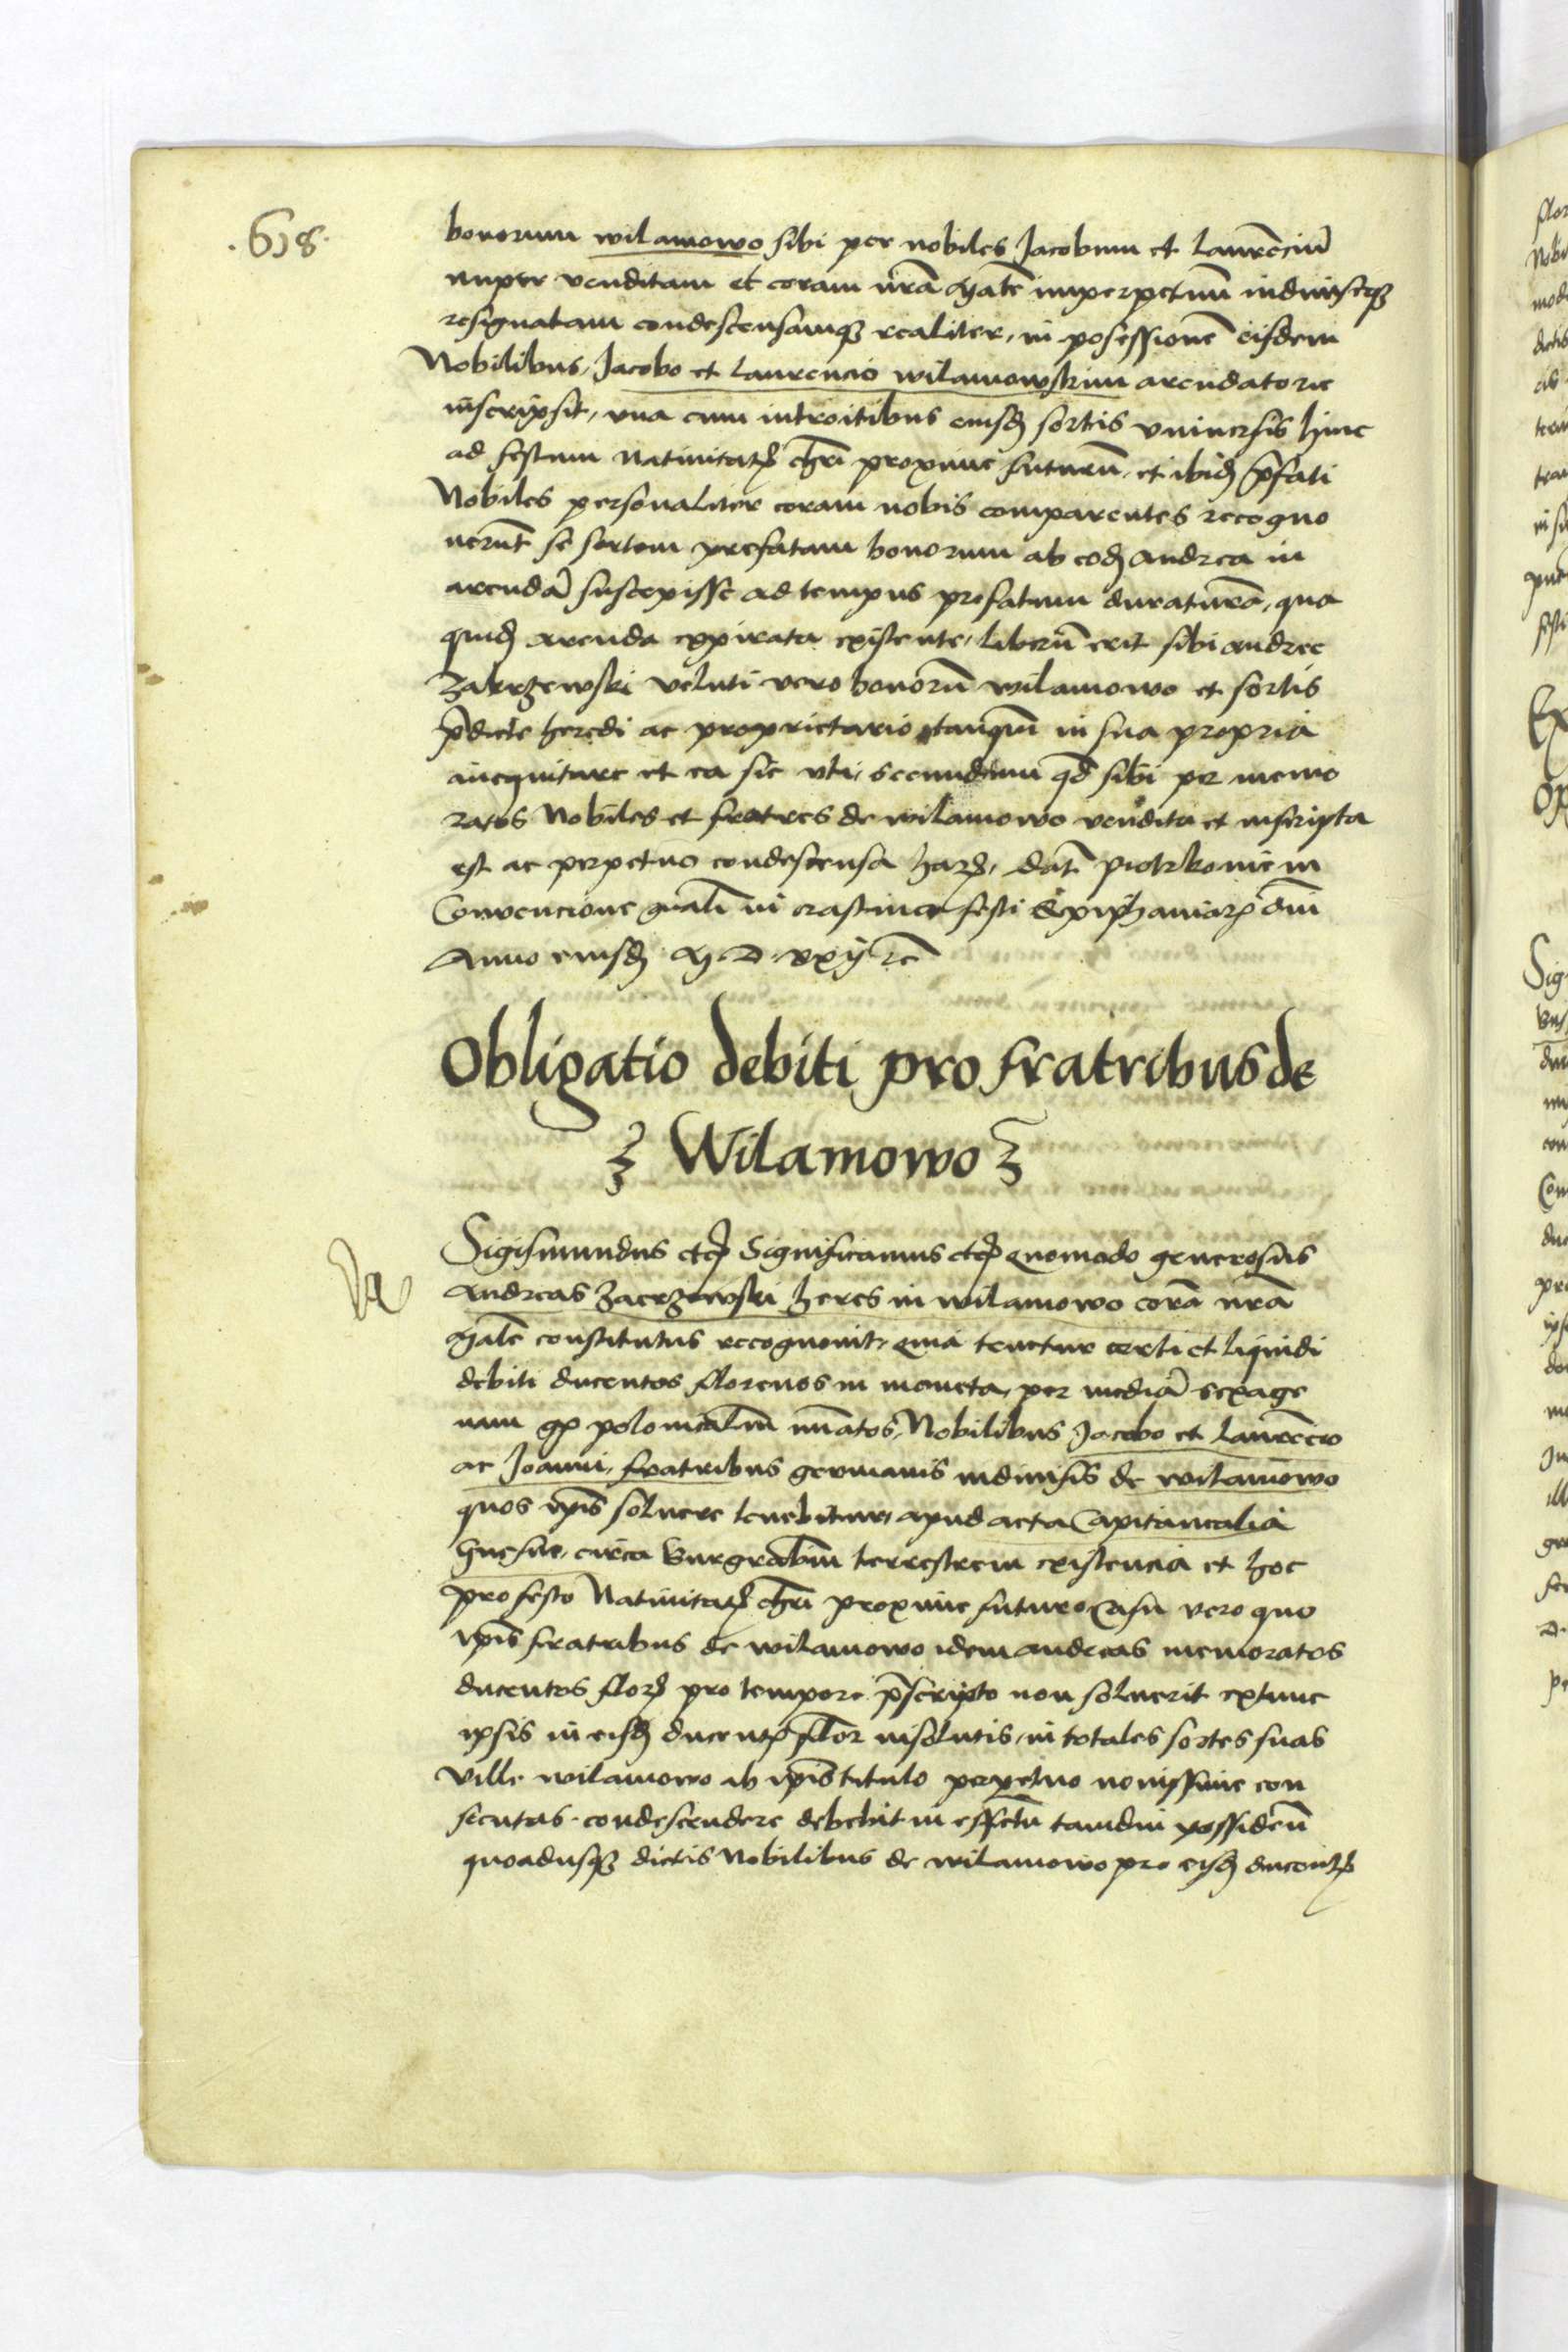 .618.
bonorum wilamowo sibi per nobiles Jacobum et Laurēciū
nuper venditam et coram nr̃a Mate imperpetuū indivise
resignatam condescensamq3 realiter, in posessionē eisdem
Nobilibus, Jacobo et Laurencio wilamowskim arendatorie
inscripsit, vna cum introitibus eiusd sortis vniuersis hinc
ad festum Natiuitatꝭ chri proxime futurū, et ibid p̄fati
Nobiles personaliter coram nobis comparentes recogno
uerūt se sortem prefatam bonorum ab eod Andrea in
arendā suscepisse ad tempus prefatum duraturā, qua
quid arenda expirata existente, liberū erit sibi Andree
Zakrzewski veluti vero bonorū wilamowo et sortis
p̄dicte heredi ac proprietario tanqm̄ in sua propria
inequitare et ea sic vti, secundum qd sibi per memo
ratos Nobiles et fratres de wilamowo vendita et inscripta
est ac perpetuo condescensa harꝫ, dat̄ piotrkouie in
Conuencione gnali in crastino festi Epiphaniarꝫ dni
Anno eiusd M. D. xxij rc̄
Obligatio debiti pro fratribus de
Wilamowo
Sigismundus etcꝭ Significamus etcꝭ Quomodo generosus
Andreas Zacrzewski heres in wilamowo corā nrā
Mate constitutus recognouit, quia tenetur certi et liquidi
debiti ducentos florenos in moneta, per mediā sexage
nam gꝭ polonicaliū nūatos, Nobilibus Jacobo et Laurēcio
ac Joanni, fratribus germanis indiuisis de wilamowo
quos ip̄is soluere tenebitur, apud acta Capitanealia
Gnesne, circa Burgrabiū terrestrem existencia et hoc
pro festo Natiuitatꝭ chri proxime futuro Casu vero quo
ip̄is fratribus de wilamowo idem Andreas memoratos
ducentos florꝭ pro tempore p̄scripto non soluerit extunc
ipsis in eisd ducentꝭ flor insolutis, in totales sortes suas
ville wilamowo ab ip̄is titulo perpetuo nouissime con
secutas, condescendere debebit in effctū tamdiu possidēn
quoadusq3 dictis Nobilibus de wilamowo pro eisd ducentꝭ